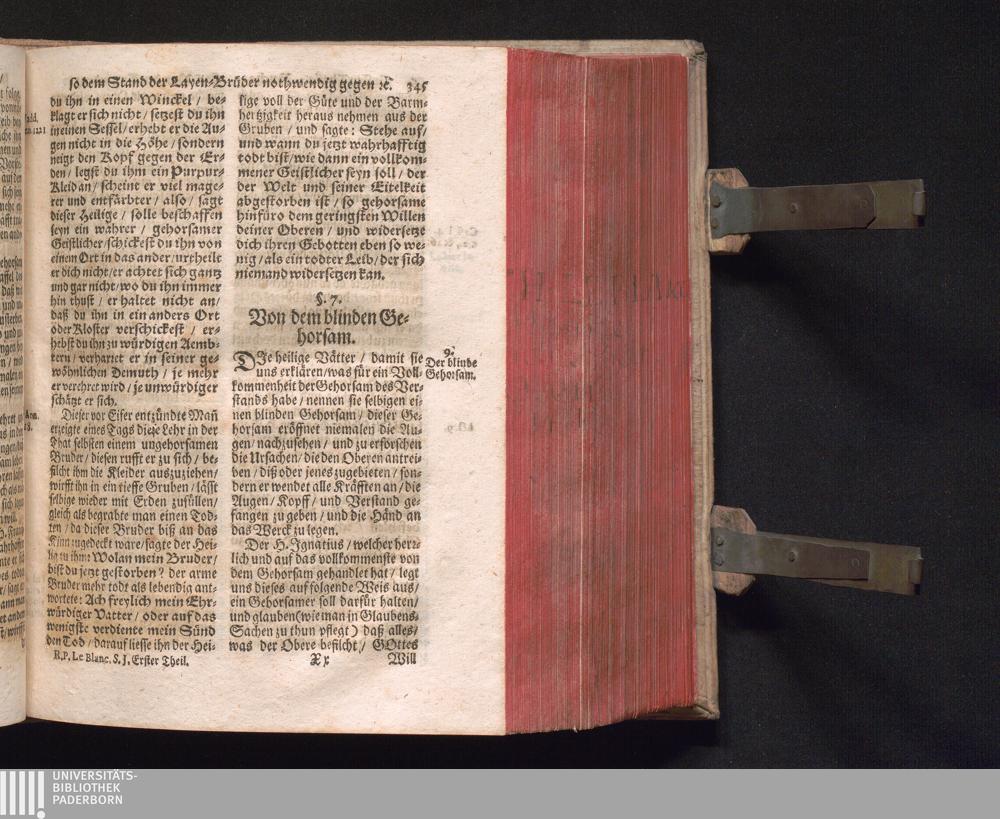 so dem Stand der Layen-Brüder nothwendig gegen ꝛc. 345
du ihn in einen Winckel / be-
klagt er sich nicht / setzest du ihn
in einen Sessel / erhebt er die Au-
gen nicht in die Höhe / sondern
neigt den Kopf gegen der Er-
den / legst du ihm ein Purpur-
Kleid an / scheint er viel mage-
rer und entfärbter / also / sagt
dieser Heilige / solle beschaffen
seyn ein wahrer / gehorsamer
Geistlicher / schickest du ihn von
einem Ort in das ander / urtheilt
er dich nicht / er achtet sich gantz
und gar nicht / wo du ihn immer
hin thust / er haltet nicht an /
daß du ihn in ein anders Ort
oder Kloster verschickest / er-
hebst du ihn zu würdigen Aemb-
tern / verharret er in seiner ge-
wöhnlichen Demuth / je mehr
er verehret wird / je unwürdiger
schätzt er sich.
Dieser vor Eifer entzündte Mañ
erzeigte eines Tags diese Lehr in der
That selbsten einem ungehorsamen
Bruder / diesen rufft er zu sich / be-
filcht ihm die Kleider auszuziehen /
wirfft ihn in ein tieffe Gruben / lässt
selbige wieder mit Erden zufüllen /
gleich als begrabte man einen Tod-
ten / da dieser Bruder biß an das
Kinn zugedeckt ware / sagte der Hei-
lig zu ihm: Wolan mein Bruder /
bist du jetzt gestorben? der arme
Bruder mehr todt als lebendig ant-
wortete: Ach freylich mein Ehr-
würdiger Vatter / oder auf das
wenigste verdiente mein Sünd
den Tod / darauf liesse ihn der Hei-
R. P. Le Blanc. S. J. Erster Theil.
lige voll der Güte und der Barm-
hertzigkeit heraus nehmen aus der
Gruben / und sagte: Stehe auf /
und wann du jetzt wahrhafftig
todt bist / wie dann ein vollkom-
mener Geistlicher seyn soll / der
der Welt und seiner Eitelkeit
abgestorben ist / so gehorsame
hinfüro dem geringsten Willen
deiner Oberen / und widersetze
dich ihren Gebotten eben so we-
nig / als ein todter Leib / der sich
niemand widersetzen kan.
§. 7.
Von dem blinden Ge-
horsam.
DIe heilige Vätter / damit sie
uns erklären / was für ein Voll-
kommenheit der Gehorsam des Ver-
stands habe / nennen sie selbigen ei-
nen blinden Gehorsam / dieser Ge-
horsam eröffnet niemalen die Au-
gen / nachzusehen / und zu erforschen
die Ursachen / die den Oberen antrei-
ben / diß oder jenes zugebieten / son-
dern er wendet alle Kräfften an / die
Augen / Kopff / und Verstand ge-
fangen zu geben / und die Händ an
das Werck zu legen.
Der H. Ignatius / welcher hertz-
lich und auf das vollkommenste von
dem Gehorsam gehandlet hat / legt
uns dieses auf folgende Weis aus /
ein Gehorsamer soll darfür halten /
und glauben (wie man in Glaubens-
Sachen zu thun pflegt) daß alles /
was der Obere befilcht / GOttes
Xx Will
9.
Der blinde
Gehorsam.
UNIVERSITÄTS-
BIBLIOTHEK
PADERBORN